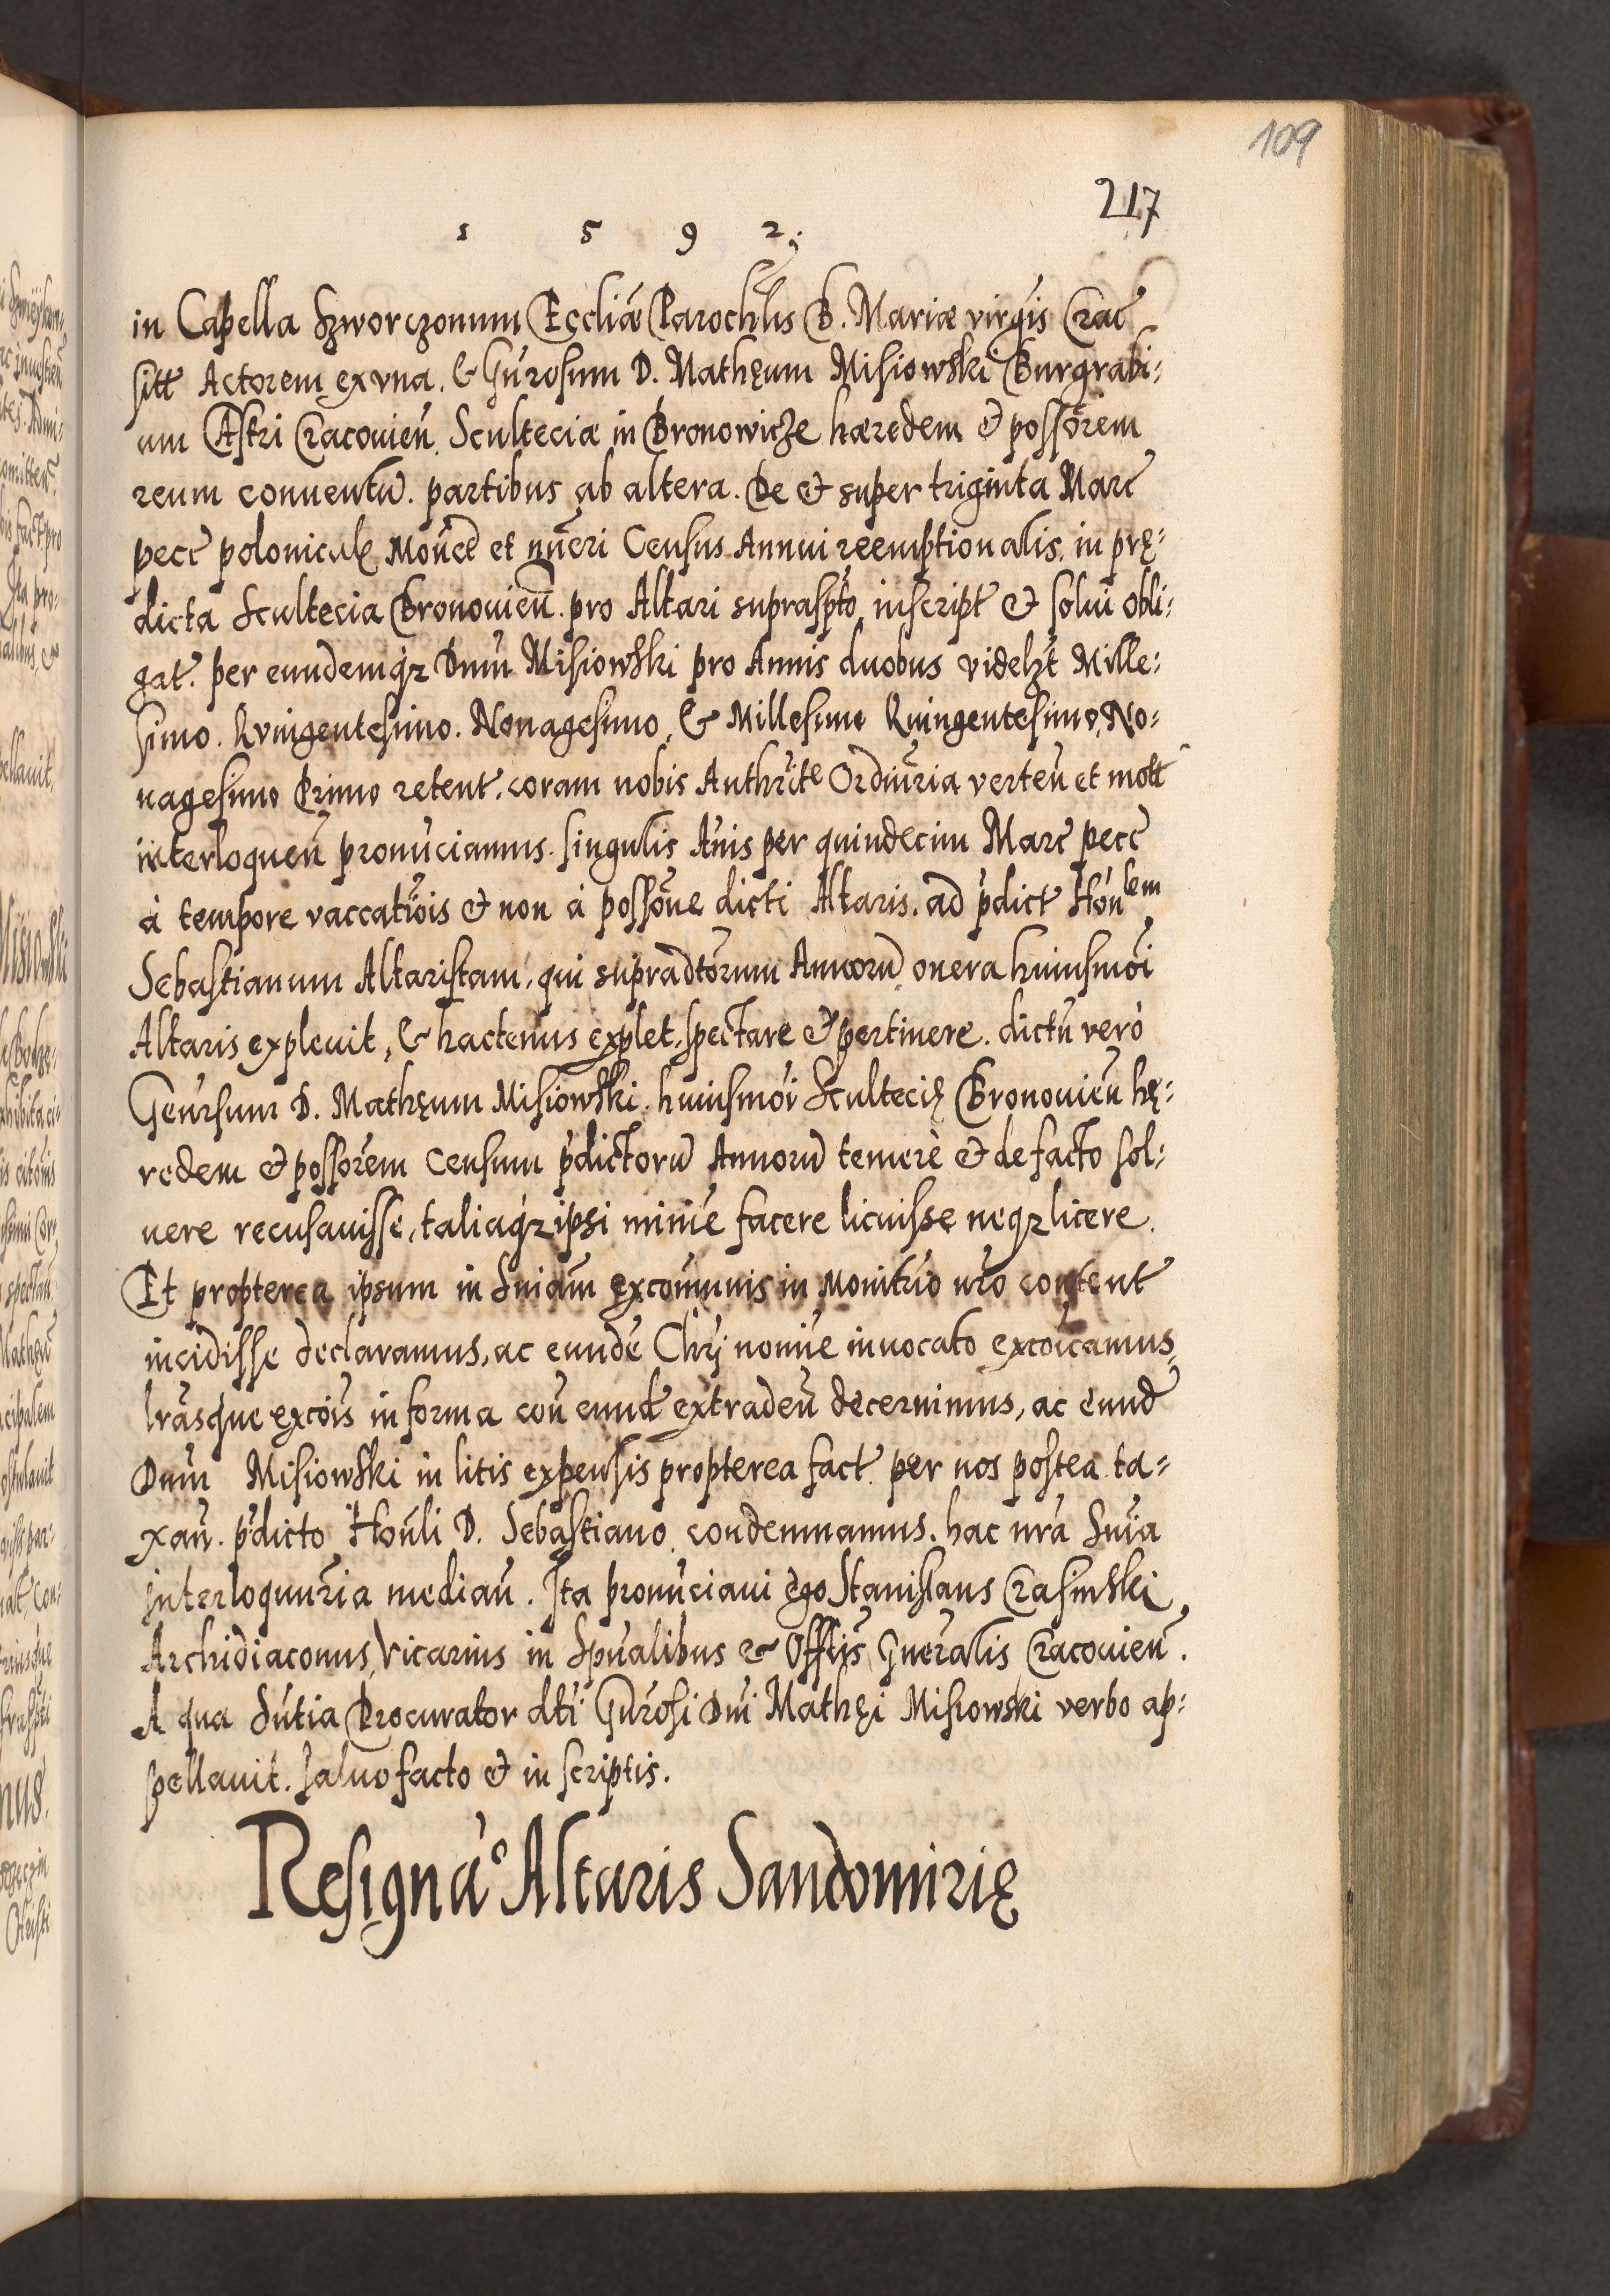 109
217
1 5 9 2.
in Capella Szworczonum Eccliæ Parochlis B. Mariæ virgis Crac
sitt Actorem ex vna. & Gnrosum D. Mathęum Misiowski Burgrabi=
um Castri Cracouien̄. Sculteciæ in Bronowicze hæredem & possōrem
reum conuentū. partibus ab altera. De & super triginta Marc̄
pecc̄ polonical Monēe et nūeri Census Annui reemptionalis. in prę=
dicta Scultecia Bronouien̄. pro Altari suprasp̄to inscript & solui obli=
gat. per eundemqz Dnū Misiowski pro Annis duobus videlzt Mille=
simo. Kvingentesimo. Nonagesimo, & Millesimo Kuingentesimo, No=
nagesimo Primo retent. coram nobis Authrite Ordiūria verten̄ et mott
interloquen̄ pronūciamus. singulis Anīs per quindecim Marc̄ pecc̄
à tempore vaccatiōis & non à possōne dicti Altaris. ad p̄dict Hon̄lem
Sebastianum Altaristam, qui supradtōrum Annorū onera huiusmōi
Altaris expleuit, & hactenus explet, spectare & pertinere. dictū verò
Genrsum D. Mathęum Misiowski. huiusmōi Scultecię Bronouien̄ hę=
redem & possōrem Censum p̄dictorū Annorū temerè & de facto sol=
uere recusauisse, taliaqz ipsi minīe facere licuisse neqz licere.
Et propterea ipsum in Sniām excōmunis in Monitrio nrō content
incidisse declaramus, ac eundē Chrj nomīe inuocato excōicamus,
lrāsque excōis in forma con̄ eund extraden̄ decernimus, ac eund
Dnm̄ Misiowski in litis expensis propterea fact per nos postea ta=
xan̄. p̄dicto Honli D. Sebastiano condemnamus. hac nrā Snīa
interloquuria median̄. Ita pronūciaui ego Stanislaus Crasinski
Archidiaconus, Vicarius in Spūalibus & Offlis Gneralis Cracouien̄.
A qua Sntia Procurator dti Gnrosi Dnī Mathęi Misiowski verbo ap=
pellauit. saluo facto & in scriptis.
Resigna° Altaris Sandomirię